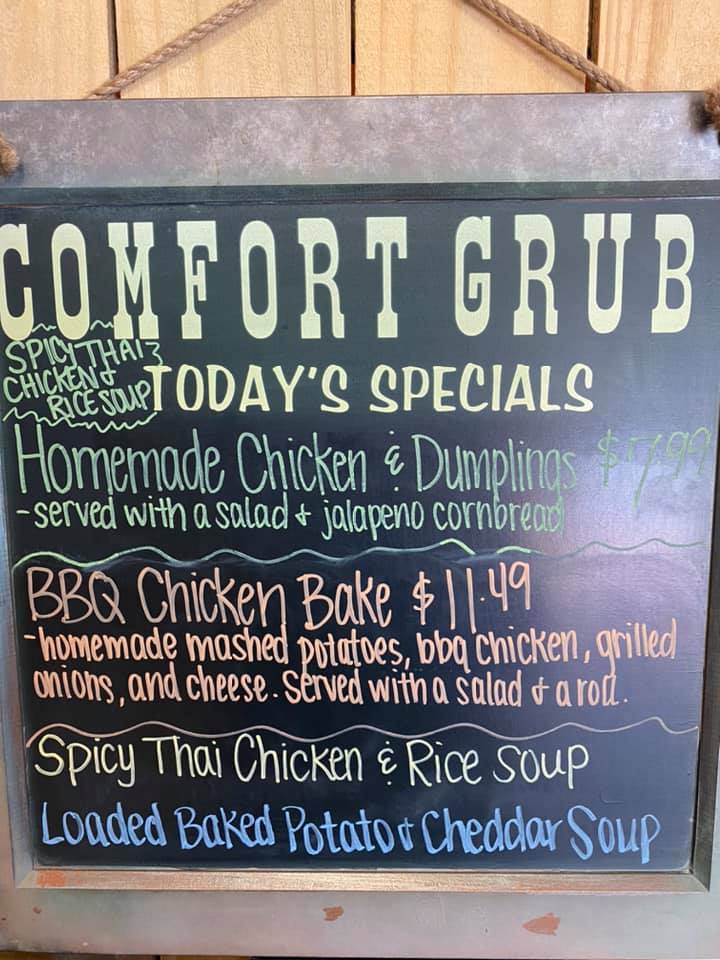 COMFORT GRUB
SPICY THAI
CHICKEN &
RICE SOUP
TODAY'S SPECIALS
Homemade Chicken & Dumplings
-served with a salad & jalapeno cornbread
BBQ Chicken Bake $11.49
-homemade mashed potatoes, bbq chicken, grilled
onions, and cheese. Served with a salad & a roll.
Spicy Thai Chicken & Rice Soup
Loaded Baked Potato & Cheddar Soup